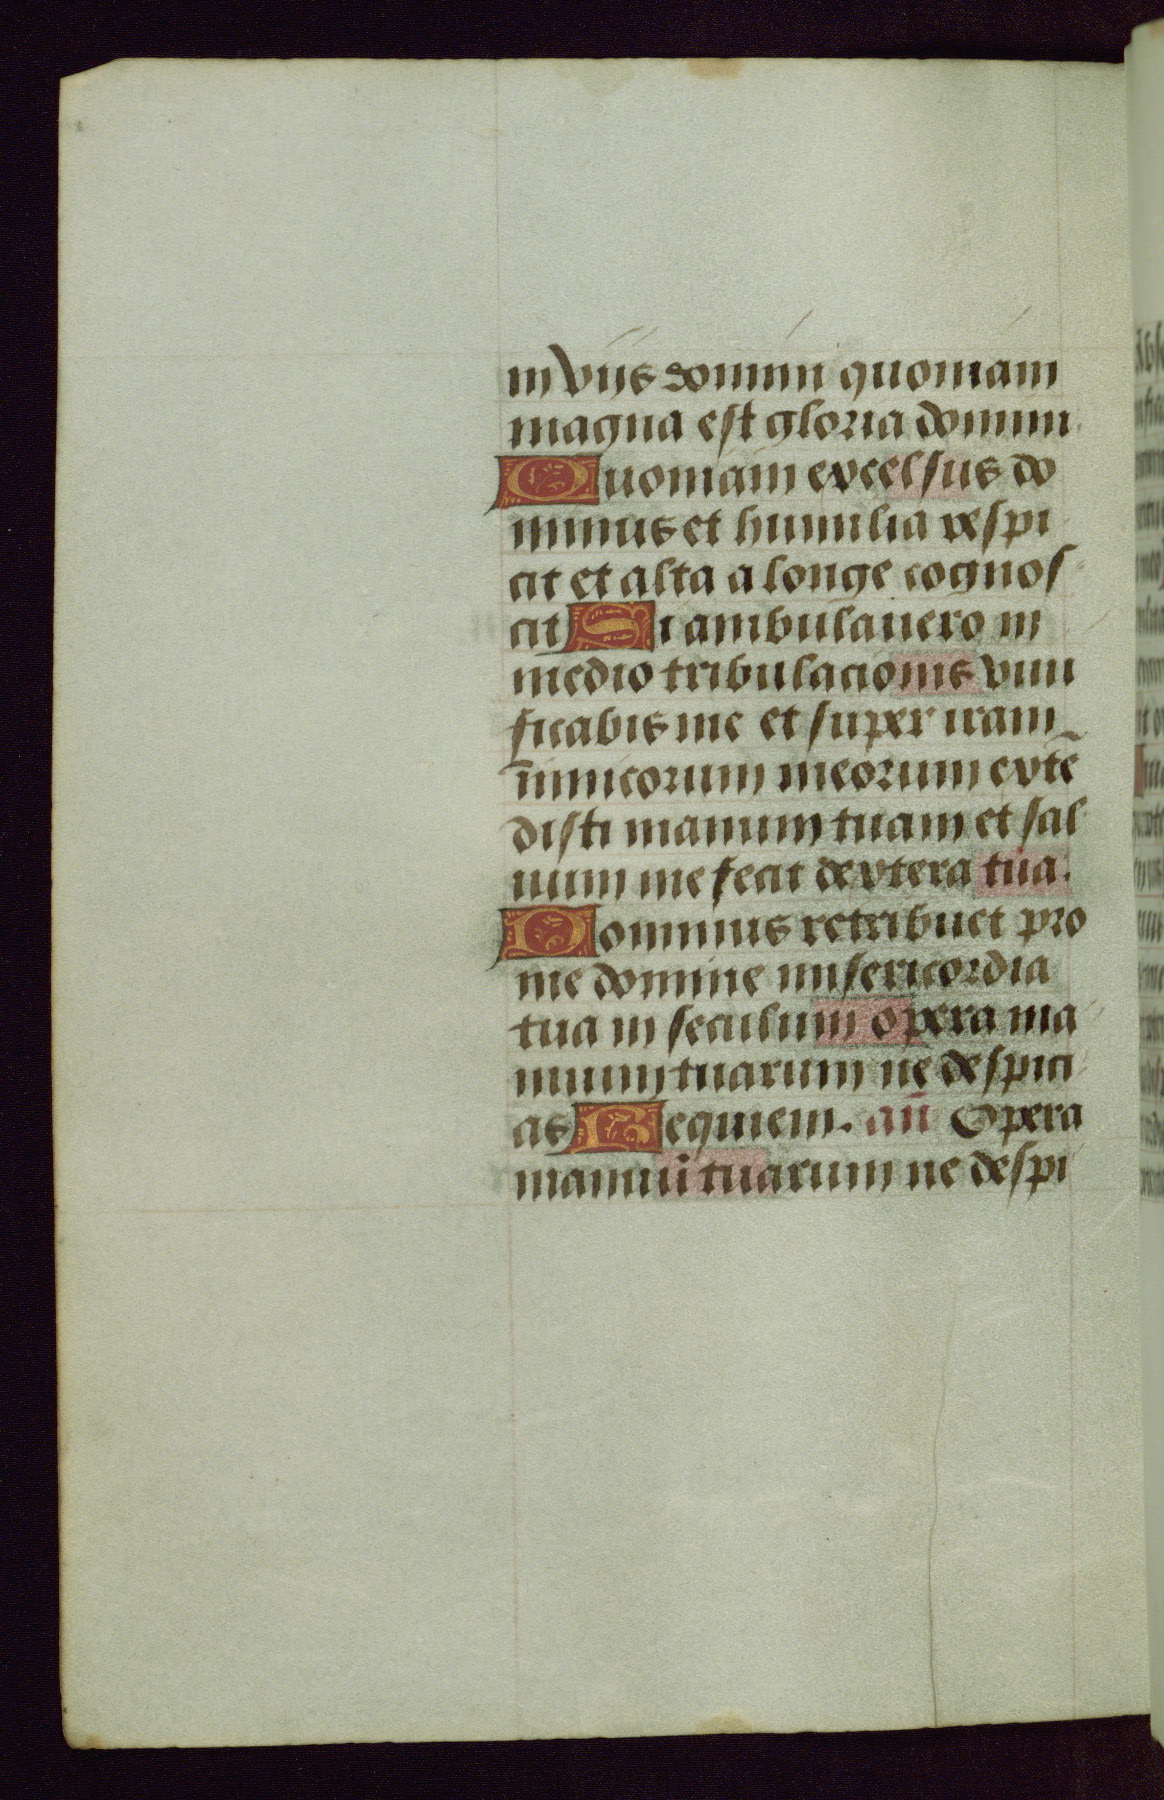 in viis domini quoniam
magna est gloria domini.
Quoniam excelsus do
minus et humilia respi
cit et alta a longe cognos
cit Si ambulauero in
medio tribulacionis viui
ficabis me et super iram
inimicorum meorum extē
disti manum tuam et sal
uum me fecit dextera tua.
Dominus retribuet pro
me domine misericordia
tua in seculum opera ma
nuum tuarum ne despici
as Requiem. añ Opera
manuū tuarum ne despi